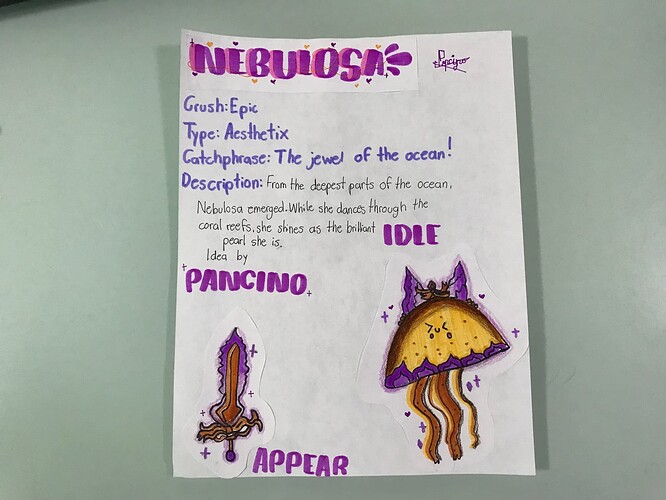 NEBULOSA
Pancino
Crush: Epic
Type: Aesthetix
Catchphrase: The jewel of the ocean!
Description: From the deepest parts of the ocean,
Nebulosa emerged. While she dances through the
coral reefs, she shines as the brilliant
pearl she is.
Idea by
PANCINO
IDLE
APPEAR